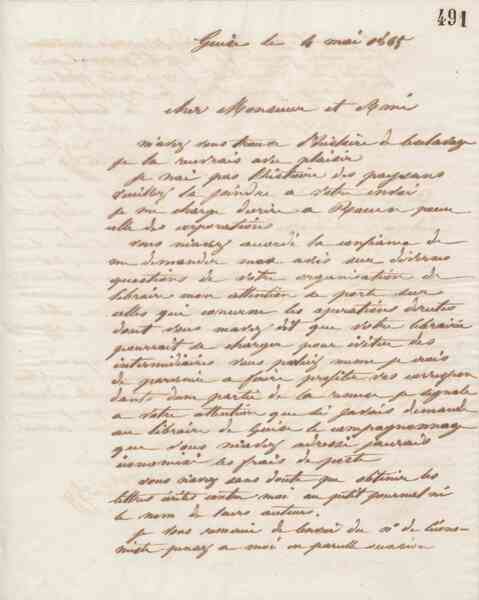 491
Guise le 4 mai 1865
cher Monsieur et Ami
m'avez vous trouvé l'histoire de
je la recevrais avec plaisir
je n'ai pas l'histoire des paysans
veuillez la joindre a votre envoi
je me charge d'ecrire a Rouen pour
celle des corporations
vous m'avez accordé la confiance de
me demander mon avis sur diverses
questions de votre organisation de
librairie mon attention se porte sur
celles qui concerne les operations directes
dont vous m'avez dit que votre librairie
pourrait se charger pour éviter des
intermédiaires vous parliez meme je crois
de parvenir a faire profiter vos correspon
dants d'une partie de la remise je signale
a votre attention que si j'avais demandé
au libraire de Guise le compagnonnage
que vous m'avez adressé j'aurais
économisé les frais de port
vous n'avez sans doute pu obtenir les
lettres écrites contre moi au petit journal ni
le nom de leurs auteurs.
je vous remercie de l'envoi du n° de l'écono-
miste pensez a moi en pareille